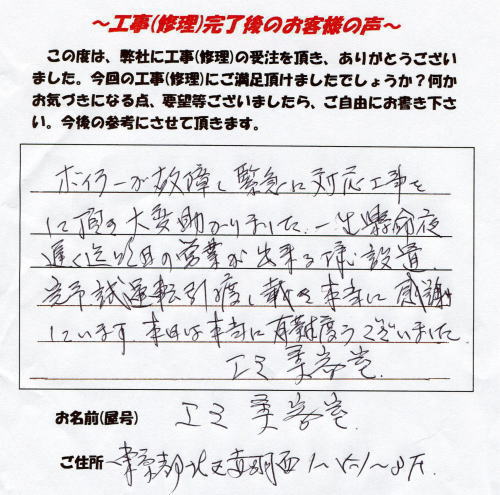 ～工事(修理)完了後のお客様の声～
この度は、弊社に工事(修理)の受注を頂き、ありがとうござい
ました。今回の工事(修理)にご満足頂けましたでしょうか？何か
お気づきになる点、要望等ございましたら、ご自由にお書き下さ
い。今後の参考にさせて頂きます。
ボイラーが故障し緊急に対応工事を
に頂き大変助かりました。一生懸命夜
遅く迄 明日の営業が出来る様に設置
完了試運転引き渡し戴き本当に感謝
しています 本日は本当に有難度うございました。
エミ美容室
お名前(屋号) エミ美容室
ご住所 東京都